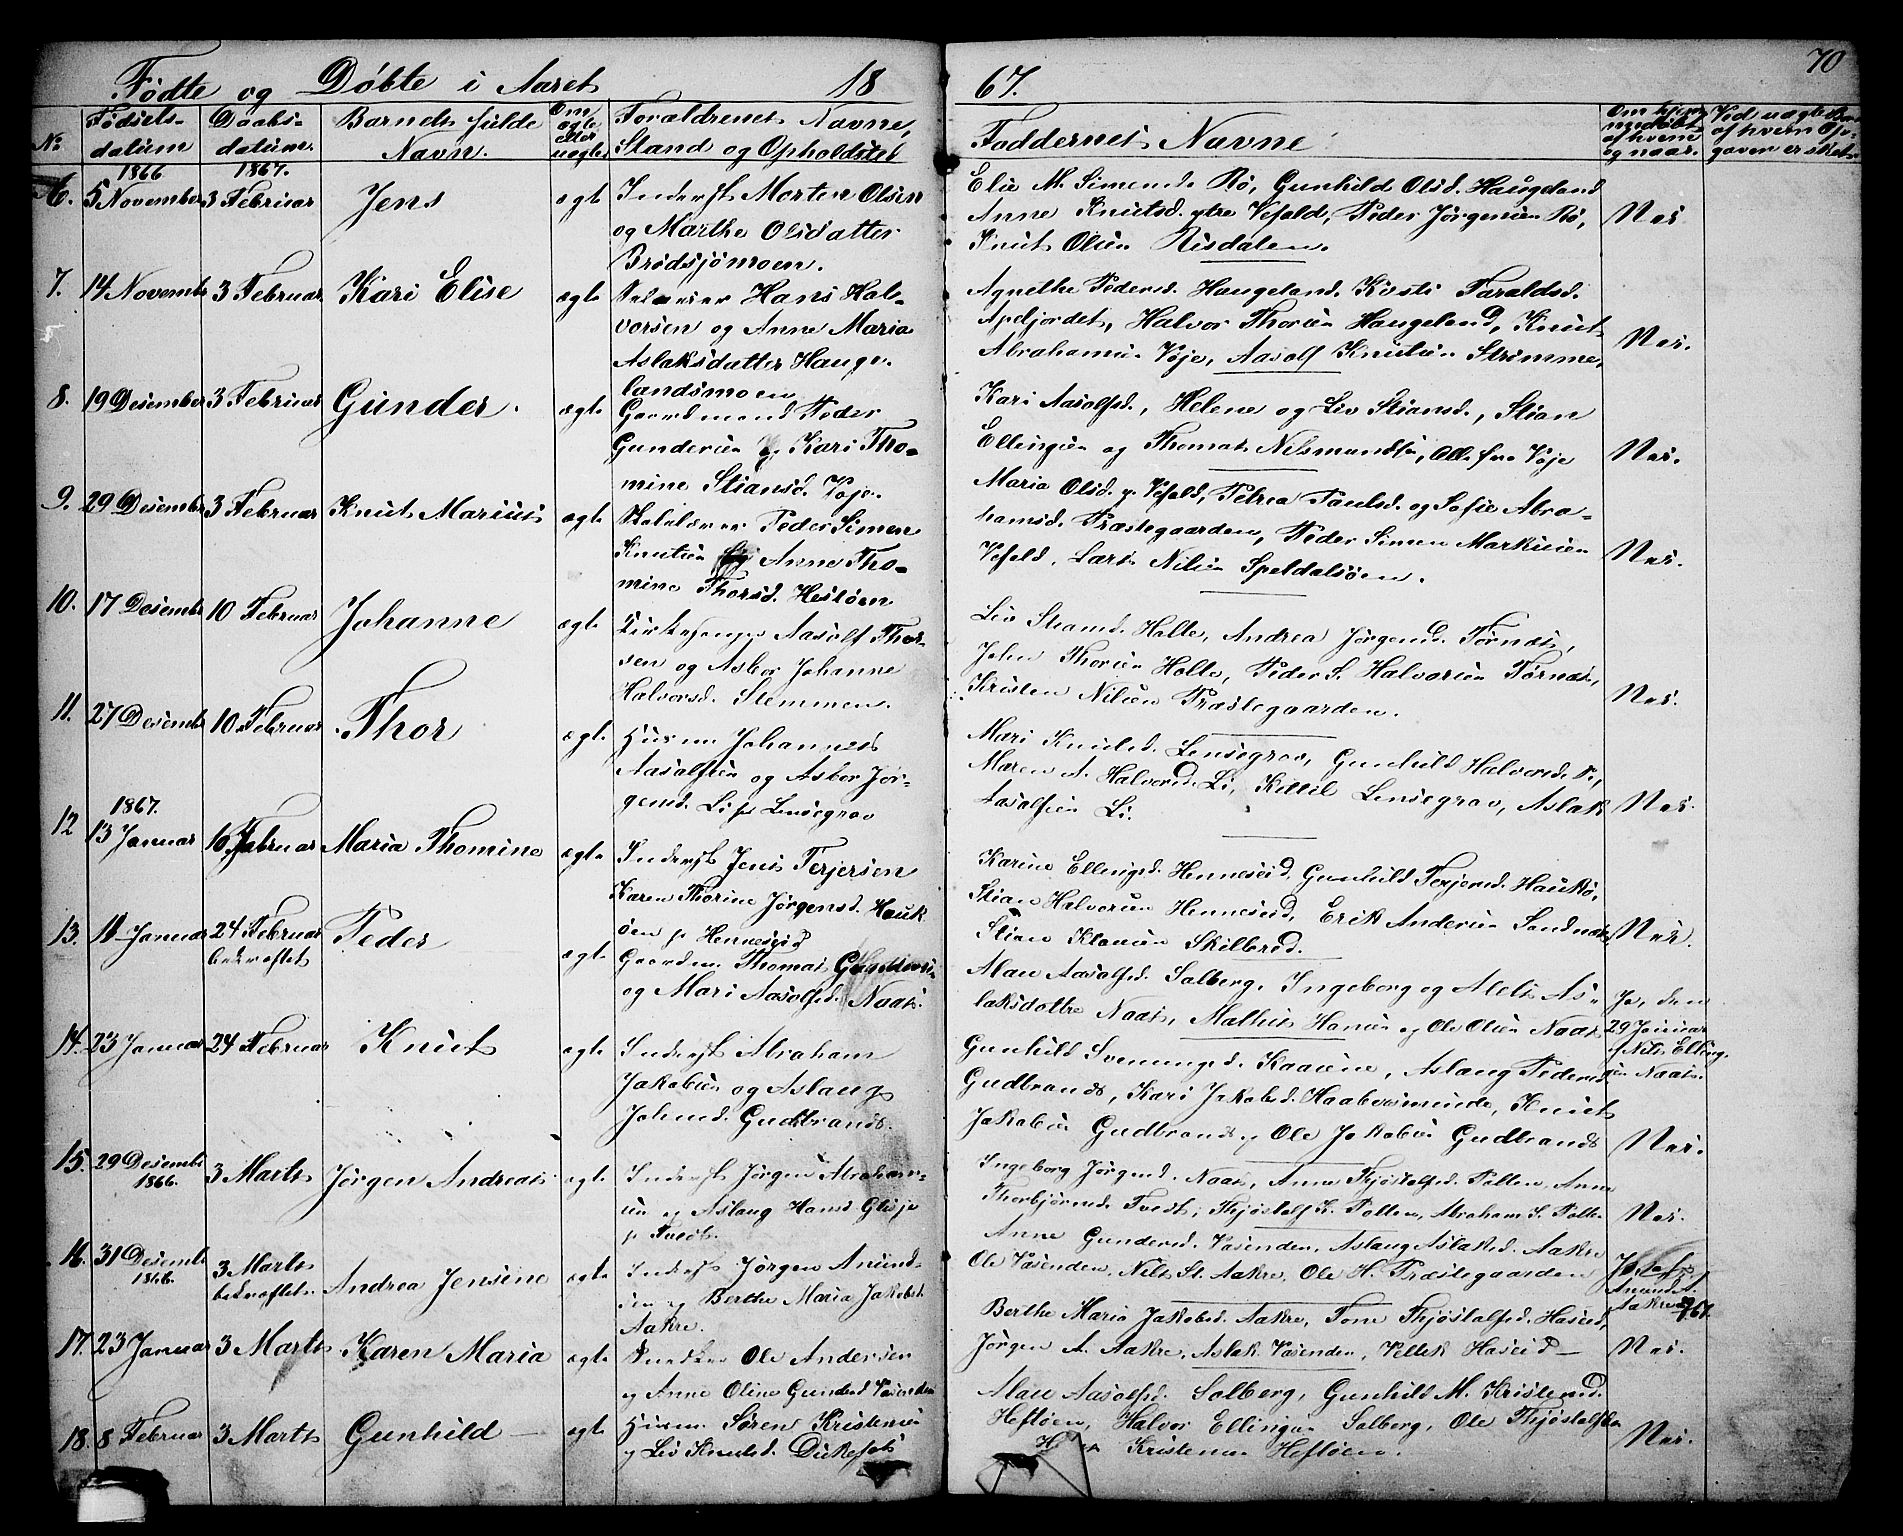 70
Födte og Döbte i Aaret 18 67.
No Fødsels- datum Daabs- datum. Barnets fulde Navn. Om ægte eller uægte Forældrenes Navne, Stand og Opholdsted Faddernes Navne Om hjemmedøbt, af hvem og naar. Ved uægte Børn af hvem Opgaven er sket
1866 1867.
6. 5 November 3 Februar Jens ægte Inderst Morten Olsen
og Marthe Olsdatter
Brödsjömoen.
Elie M. Simensd. Bö, Gunhild Olsd. Haugland
Anne Knutsd. ytre Vefald, Peder Jörgensen Bö,
Knut Olsen Risdalen.
Nei
7. 14 Novembr 3 Februar Kari Elise ægte Selveier Hans Hal-
vorsen og Anne Maria
Aslaksdatter Hauge-
landsmoen
Agnethe Pedersd. Haugeland, Kisti Taraldsd.
Apeljordet, Halvor Thorsen Haugeland, Knut
Abrahamsen Vöje, Aasolf Knutsen Strömme,
Nei.
8. 19 Desember 3 Februar Gunder. ægte Gaardmand Peder
Gundersen og Kari Tho-
mine Stiansd. Vöje.
Kari Aasolfsd., Helene og Liv Stiansd., Stian
Ellingsen og Thomas Nilsmundsen, Alle fra Vöje
Nei.
9. 29 Desember 3 Februar Knut Marius ægte Skolelærer Peder Simen
Knutsen og Anne Tho-
mine Thorsd. Hestöen
Maria Olsd. y. Vefald, Petrea Paulsd. og Sofie Abra-
hamsd. Præstegaarden, Peder Simen Markusen
Vefald, Lars Nilsen Speldalsöen.
Nei.
10. 17 Desembr 10 Februar Johanne ægte Kirkesanger Aasolf Thor-
sen og Asbor Johanne
Halvorsd. Stemmen.
Liv Stiansd. Holte, Andrea Jörgensd. Törnæs,
John Thorsen Holte, Peder S. Halvorsen Törnæs,
Kristen Nilsen Præstegaarden.
Nei.
11. 27 Desembr 10 Februar Thor ægte Husm. Johannes
Aasolfsen og Asbor Jör-
gensd. Li p. Lensegrav
Mari Knutsd. Lensegrav, Gunhild Halvorsd.
Maren A. Halvorsd. Li, Kittil Lensegrav, Aslak
Aasolfsen Li.
Nei.
1867.
12 13 Januar 10 Februar Maria Thomine ægte Inderst Jens Terjersen
Karen Thorine Jörgensd. Hauk
öen p. Henneseid
Karine Ellingsd. Henneseid, Gunhild Terjersd. Haukö,
Stian Halvorsen Henneseid, Erik Andersen Sandnæs,
Stian Klausen Skilbred.
Nei.
13. 11 Januar 24 Februar bekræftet Peder ægte Gaardm. Thomas Gundersen
og Mari Aasolfsd. Naas.
Alau Aasolfsd. Solberg, Ingeborg og Alet As-
laksdøttre Naas, Mathis Hansen og Ole Olsen Naas
Ja, den
29 Januar
af Nils Elling-
sen Naas.
14. 23 Januar 24 Februar Knut ægte Inderst Abraham
Jakobsen og Aslaug
Johnsd. Gudbrands.
Gunhild Svenungsd. Kaasene, Aslaug Pedersd.
Gudbrands, Kari Jakobsd. Haabesmunde, Knut
Jakobsen Gudbrands og Ole Jakobsen Gudbrands
Nei.
15. 29 Desembr 1866. 3 Marts Jörgen Andreas ægte Inderst Jörgen Abraham-
sen og Aslaug Hansd. Glesje
p. Tvedt.
Ingeborg Jörgensd. Naas, Anne Thjöstolfsd. Polten, Anne
Thorbjörnsd. Tvedt, Thjöstolf K. Polten, Abraham S. Polten
Nei.
16. 31 Desembr 1866. 3 Marts bekræftet. Andrea Jensine ægte Inderst Jörgen Anund-
sen og Berthe Maria Jakobsd.
Aakre.
Anne Gundersd. Vasenden, Aslaug Aslaksd. Aakre
Ole Vasenden, Nils St. Aakre, Ole H. Præstegaarden
Ja af
Anund A.
Aakre
17. 23 Januar 3 Marts Karen Maria ægte Snedker Ole Andersen
og Anne Oline Gundersd Vasenden
Berthe Maria Jakobsd. Aakre, Tone Thjöstolfsd. Haseid,
Jörgen A. Aakre, Aslak Vasenden, Vellek Haseid —
Nei.
18. 8 Februar 3 Marts Gunhild — ægte Husm. Sören Kristensen
og Liv Knutsd. Dukefos
Alau Aasolfsd. Solberg, Gunhild M. Kristensd.
Heftöen, Halvor Ellingsen Solberg, Ole Thjöstolfsen
Kristensen Heftöen.
Nei.